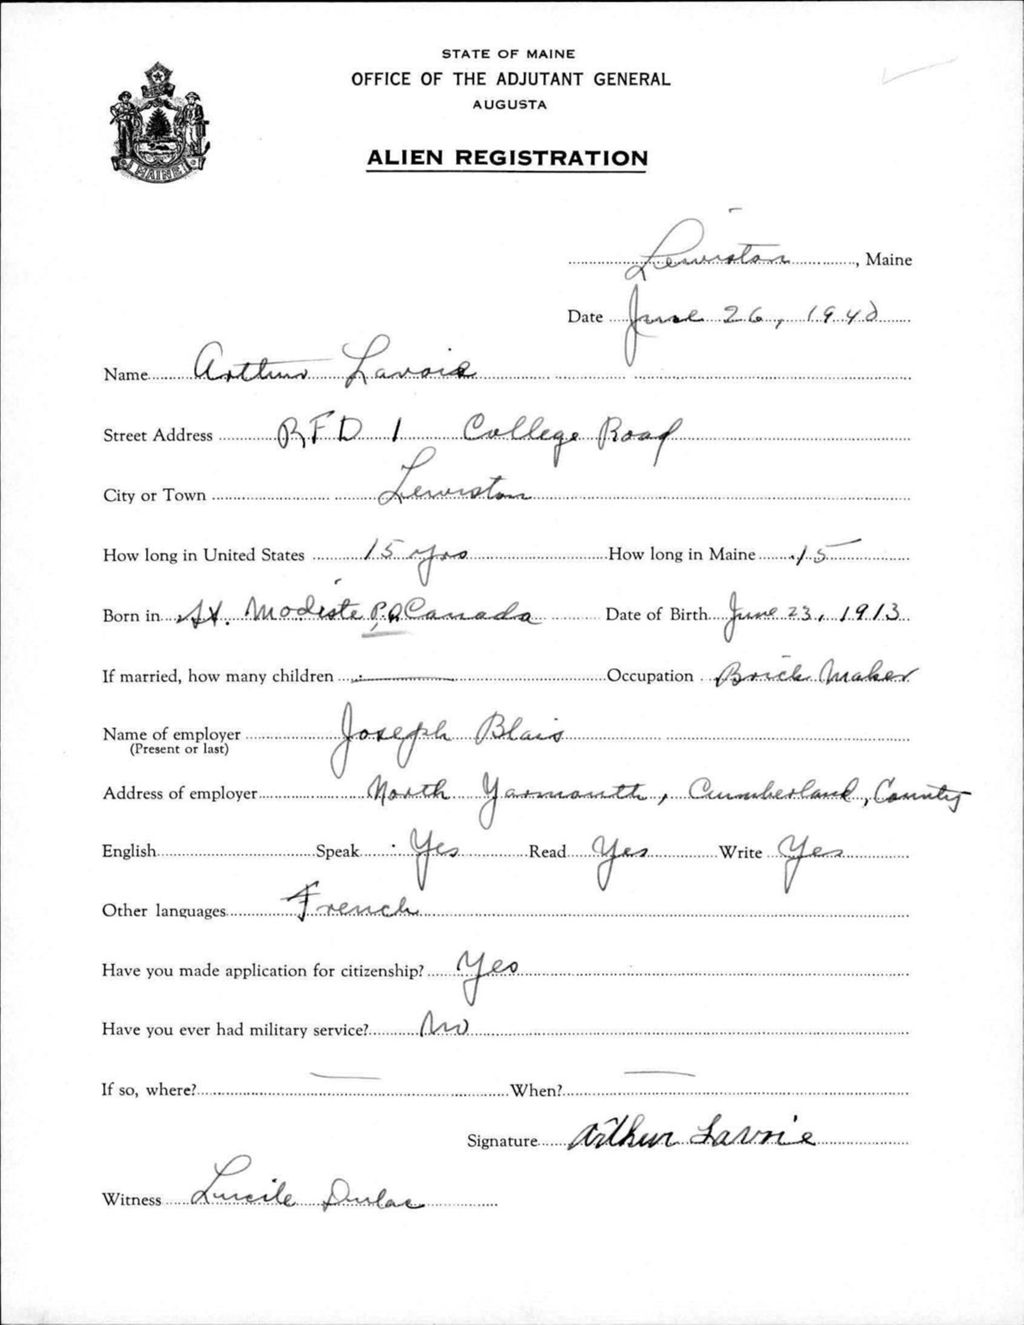 STATE OF MAINE
OFFICE OF THE ADJUTANT GENERAL
AUGUSTA
ALIEN REGISTRATION
MAINE
Lewiston, Maine
Date June 26, 1940
Name Arthur Lavoie
Street Address RFD 1 College Road
City or Town Lewiston
How long in United States 15 yrs How long in Maine 15
Born in St. Modeste P.Q. Canada Date of Birth June 23, 1913
If married, how many children — Occupation Brick Maker
Name of employer Joseph Blais
(Present or last)
Address of employer North Yarmouth, Cumberland, County
English Speak Yes Read Yes Write Yes
Other languages French
Have you made application for citizenship? Yes
Have you ever had military service? No
If so, where? — When? —
Signature Arthur Lavoie
Witness Lucile